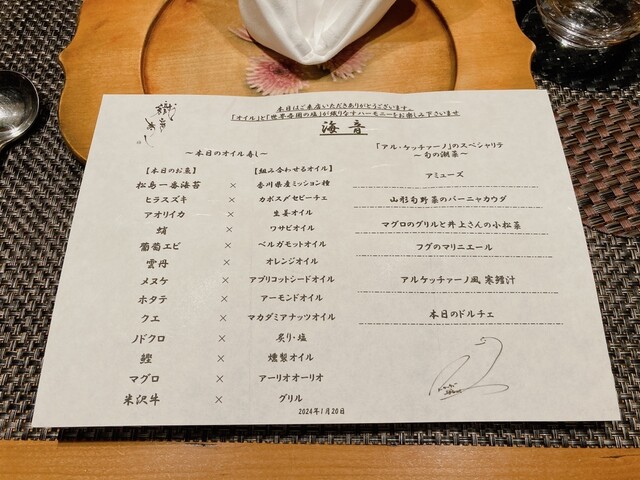 本日はご来店いただきありがとうございます。
「オイル」と「世界各国の塩」が織りなすハーモニーをお楽しみ下さいませ
海音
〜本日のオイル寿し〜
【本日のお魚】 【組み合わせるオイル】
松島一番海苔 × 香川県産ミッション種
ヒラスズキ × カボス〆セビーチェ
アオリイカ × 生姜オイル
蛸 × ワサビオイル
葡萄エビ × ベルガモットオイル
雲丹 × オレンジオイル
メヌケ × アプリコットシードオイル
ホタテ × アーモンドオイル
クエ × マカダミアナッツオイル
ノドクロ × 炙り・塩
鰹 × 燻製オイル
マグロ × アーリオオーリオ
米沢牛 × グリル
「アル・ケッチァーノ」のスペシャリテ
〜旬の潮菜〜
アミューズ
山形旬野菜のバーニャカウダ
マグロのグリルと井上さんの小松菜
フグのマリニエール
アルケッチァーノ風 寒鱈汁
本日のドルチェ
2024年1月20日